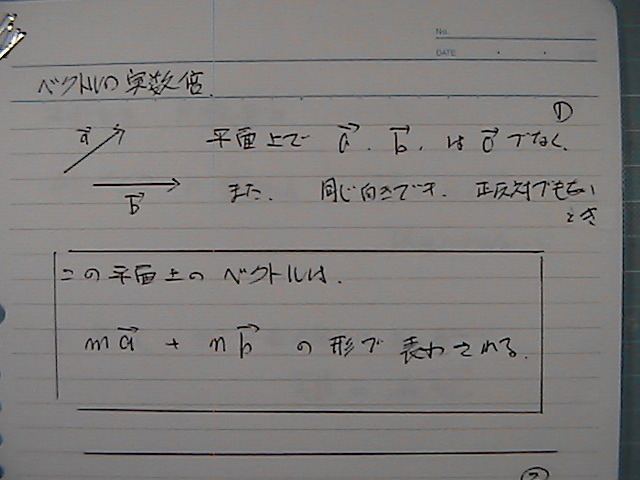 No.
DATE
ベクトルの実数倍.
①
a→ 平面上で a→, b→, は 0→ でなく,
b→ また, 同じ向きでも, 正反対でもない
とき
この平面上のベクトルは,
ma→ + nb→ の形で表わされる.
②